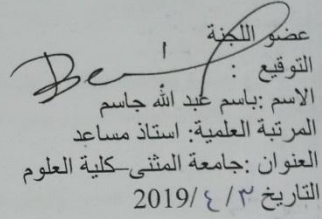 عضو اللجنة
التوقيع :
الاسم :باسم عبد الله جاسم
المرتبة العلمية: استاذ مساعد
العنوان :جامعة المثنى-كلية العلوم
التاريخ ٣ /٤ /2019